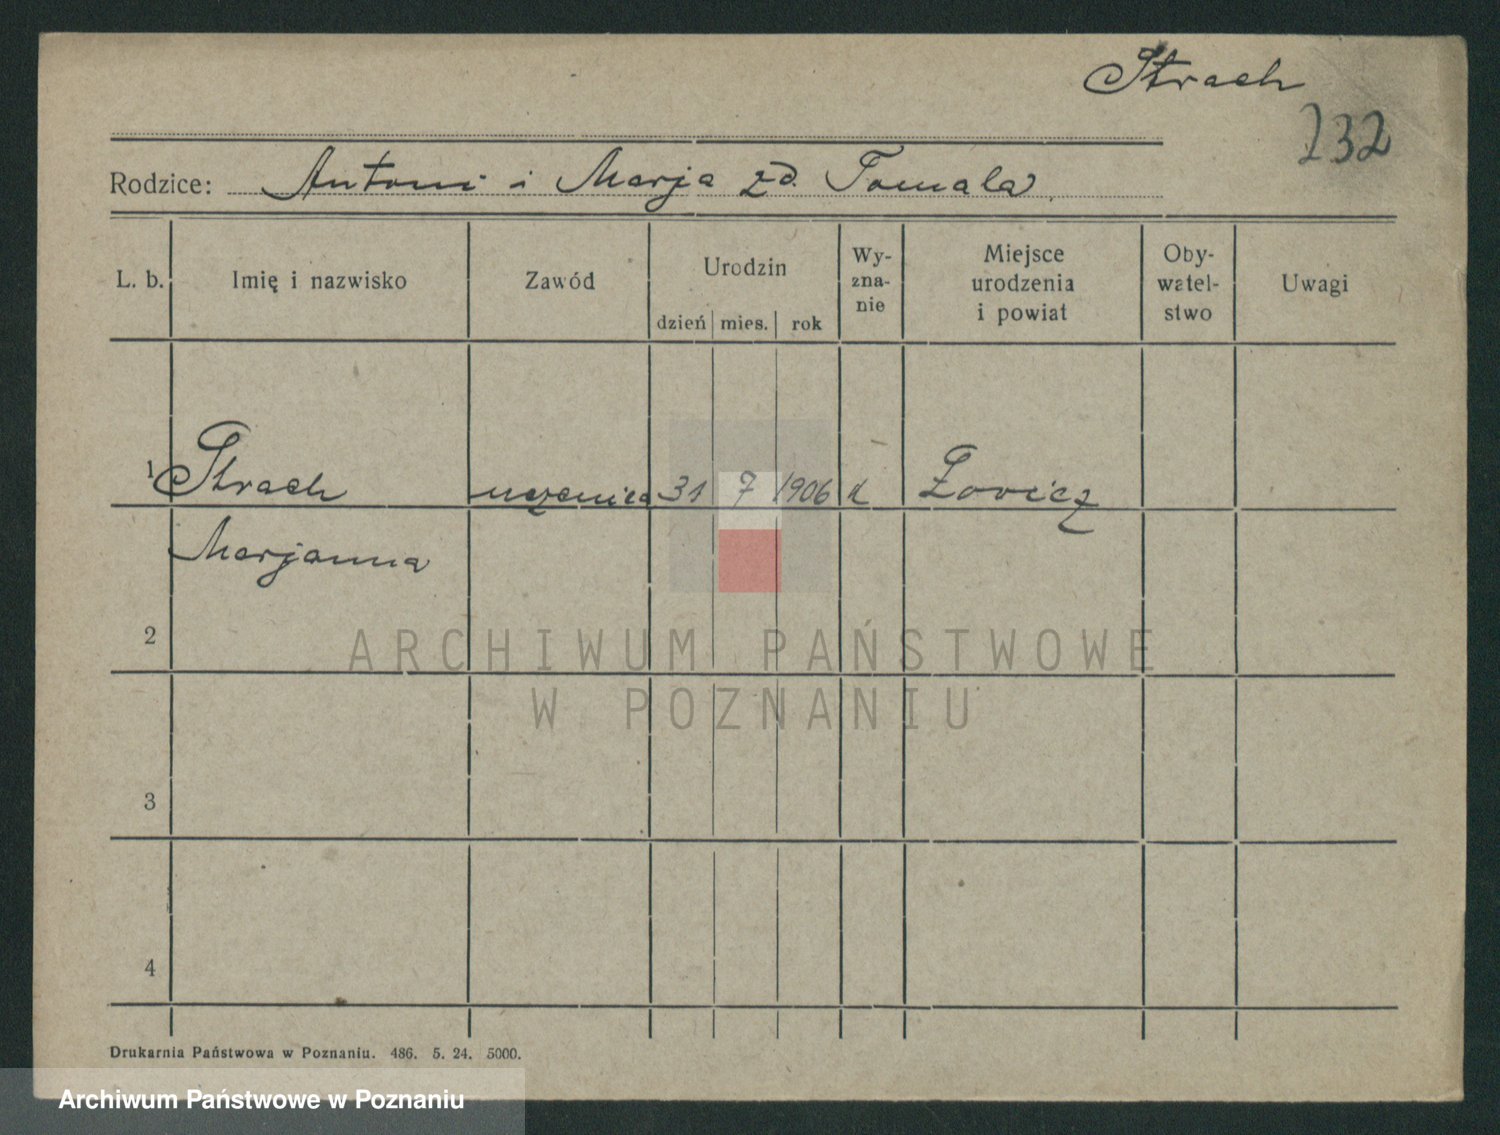 Strach
232
Rodzice: Antoni i Marja zd. Tomala
L. b. Imię i nazwisko Zawód Urodzin dzień mies. rok Wy-zna-nie Miejsce urodzenia i powiat Oby-watel-stwo Uwagi
1 Strach uczenica 31 7 1906 k
Marjanna
2
ARCHIWUM PAŃSTWOWE
W POZNANIU
3
4
Drukarnia Państwowa w Poznaniu. 486. 5. 24. 5000.
Archiwum Państwowe w Poznaniu